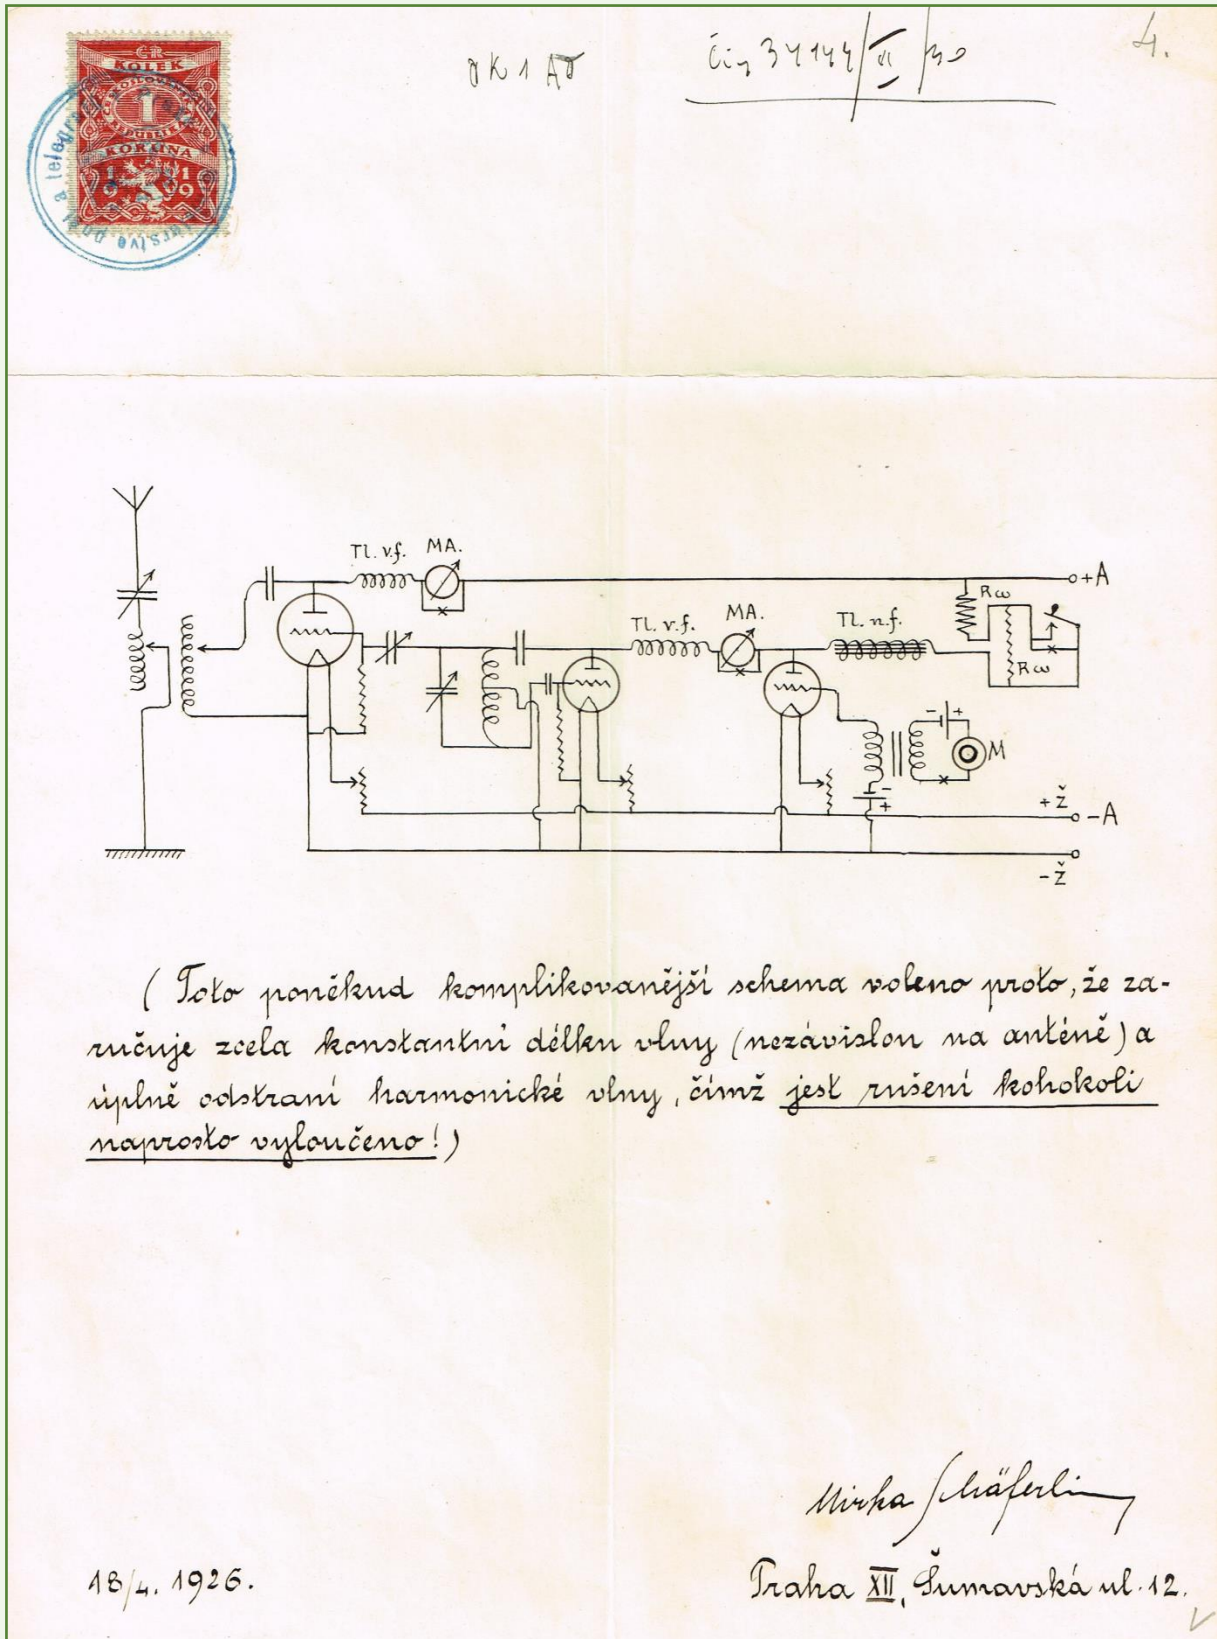 ČR
KOLEK
1
KORUNA
19 19
OK 1 AA
4.
Tl. v.f. MA.
+A
Rω
Tl. v.f. MA. Tl. n.f.
Rω
- +
M
-
+
+ž
-A
-ž
( Toto poněkud komplikovanější schema voleno proto, že za-
ručuje zcela konstantní délku vlny (nezávislou na anténě) a
úplně odstraní harmonické vlny, čímž jest rušení kohokoli
naprosto vyloučeno! )
Mirka Schäferling
18/4. 1926.
Praha XII, Šumavská ul. 12.